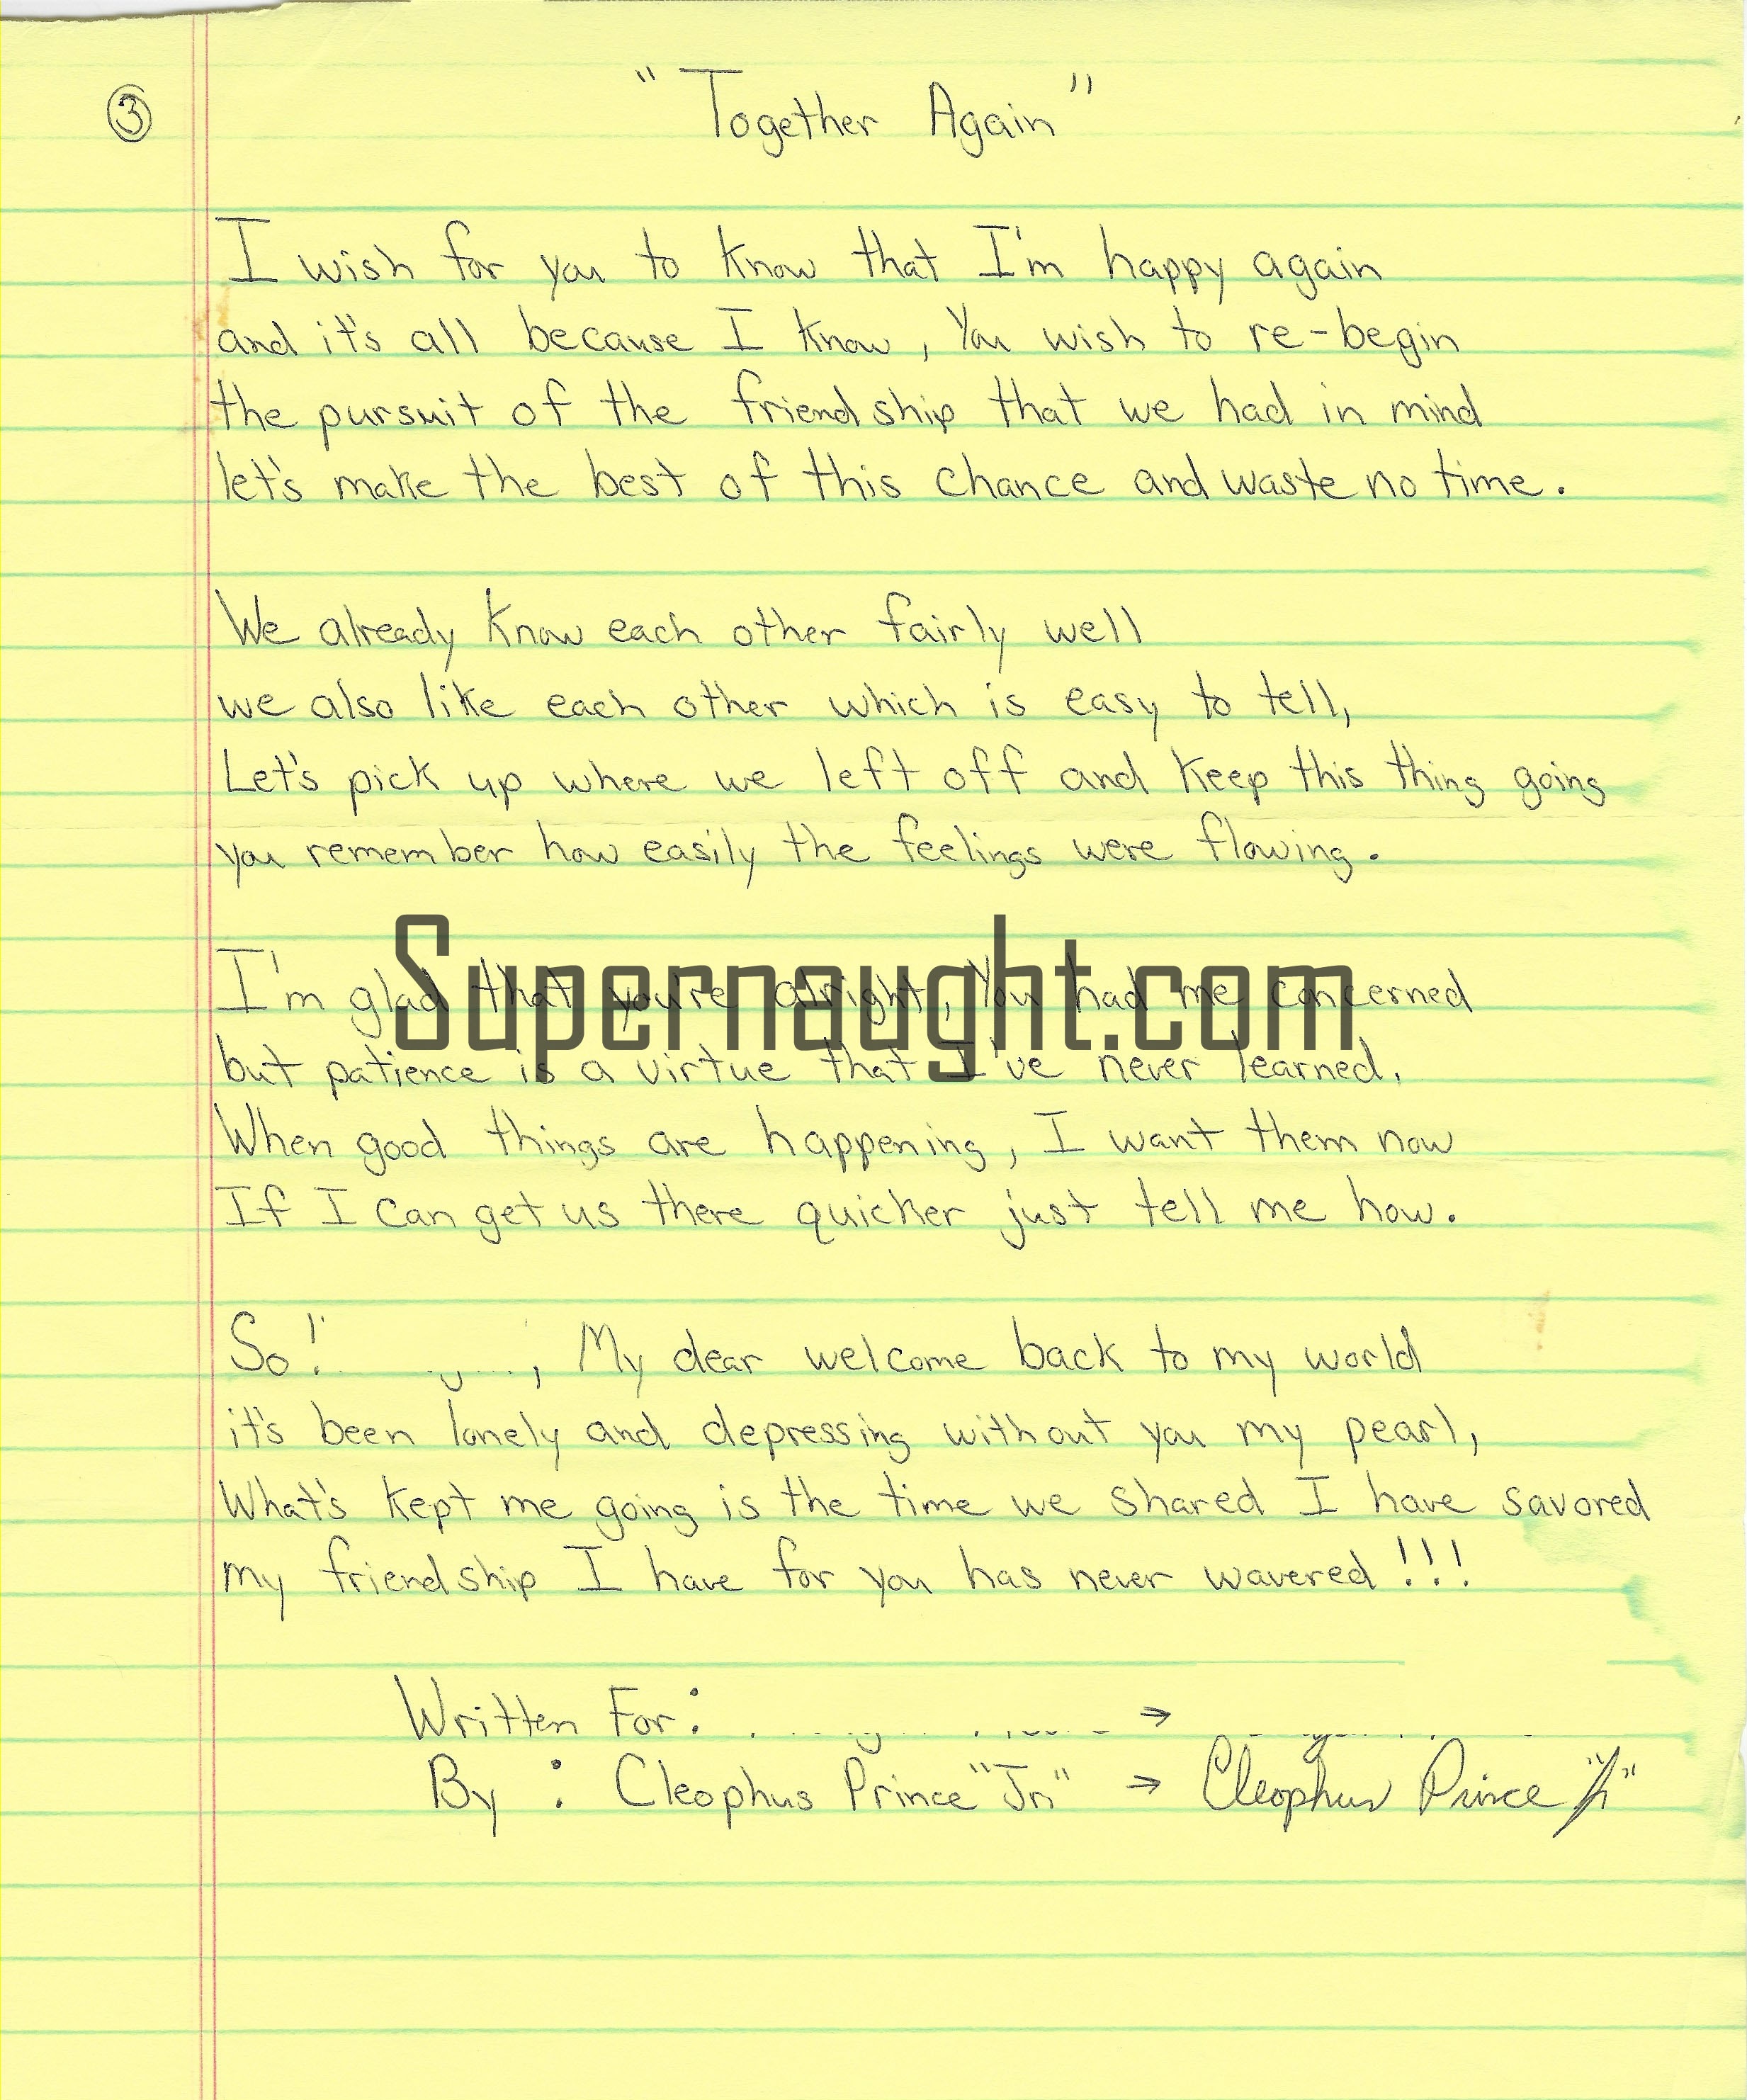 ③
"Together Again"
I wish for you to know that I'm happy again
and it's all because I know, You wish to re-begin
the pursuit of the friendship that we had in mind
let's make the best of this chance and waste no time.
We already know each other fairly well
we also like each other which is easy to tell,
Let's pick up where we left off and keep this thing going
you remember how easily the feelings were flowing.
Supernaught.com
I'm glad that you're alright, You had me concerned
but patience is a virtue that I've never learned,
When good things are happening, I want them now
If I can get us there quicker just tell me how.
So! , My dear welcome back to my world
it's been lonely and depressing without you my pearl,
What's kept me going is the time we shared I have savored
my friendship I have for you has never wavered!!!
Written For: →
By : Cleophus Prince "Jr" → Cleophus Prince "Jr"